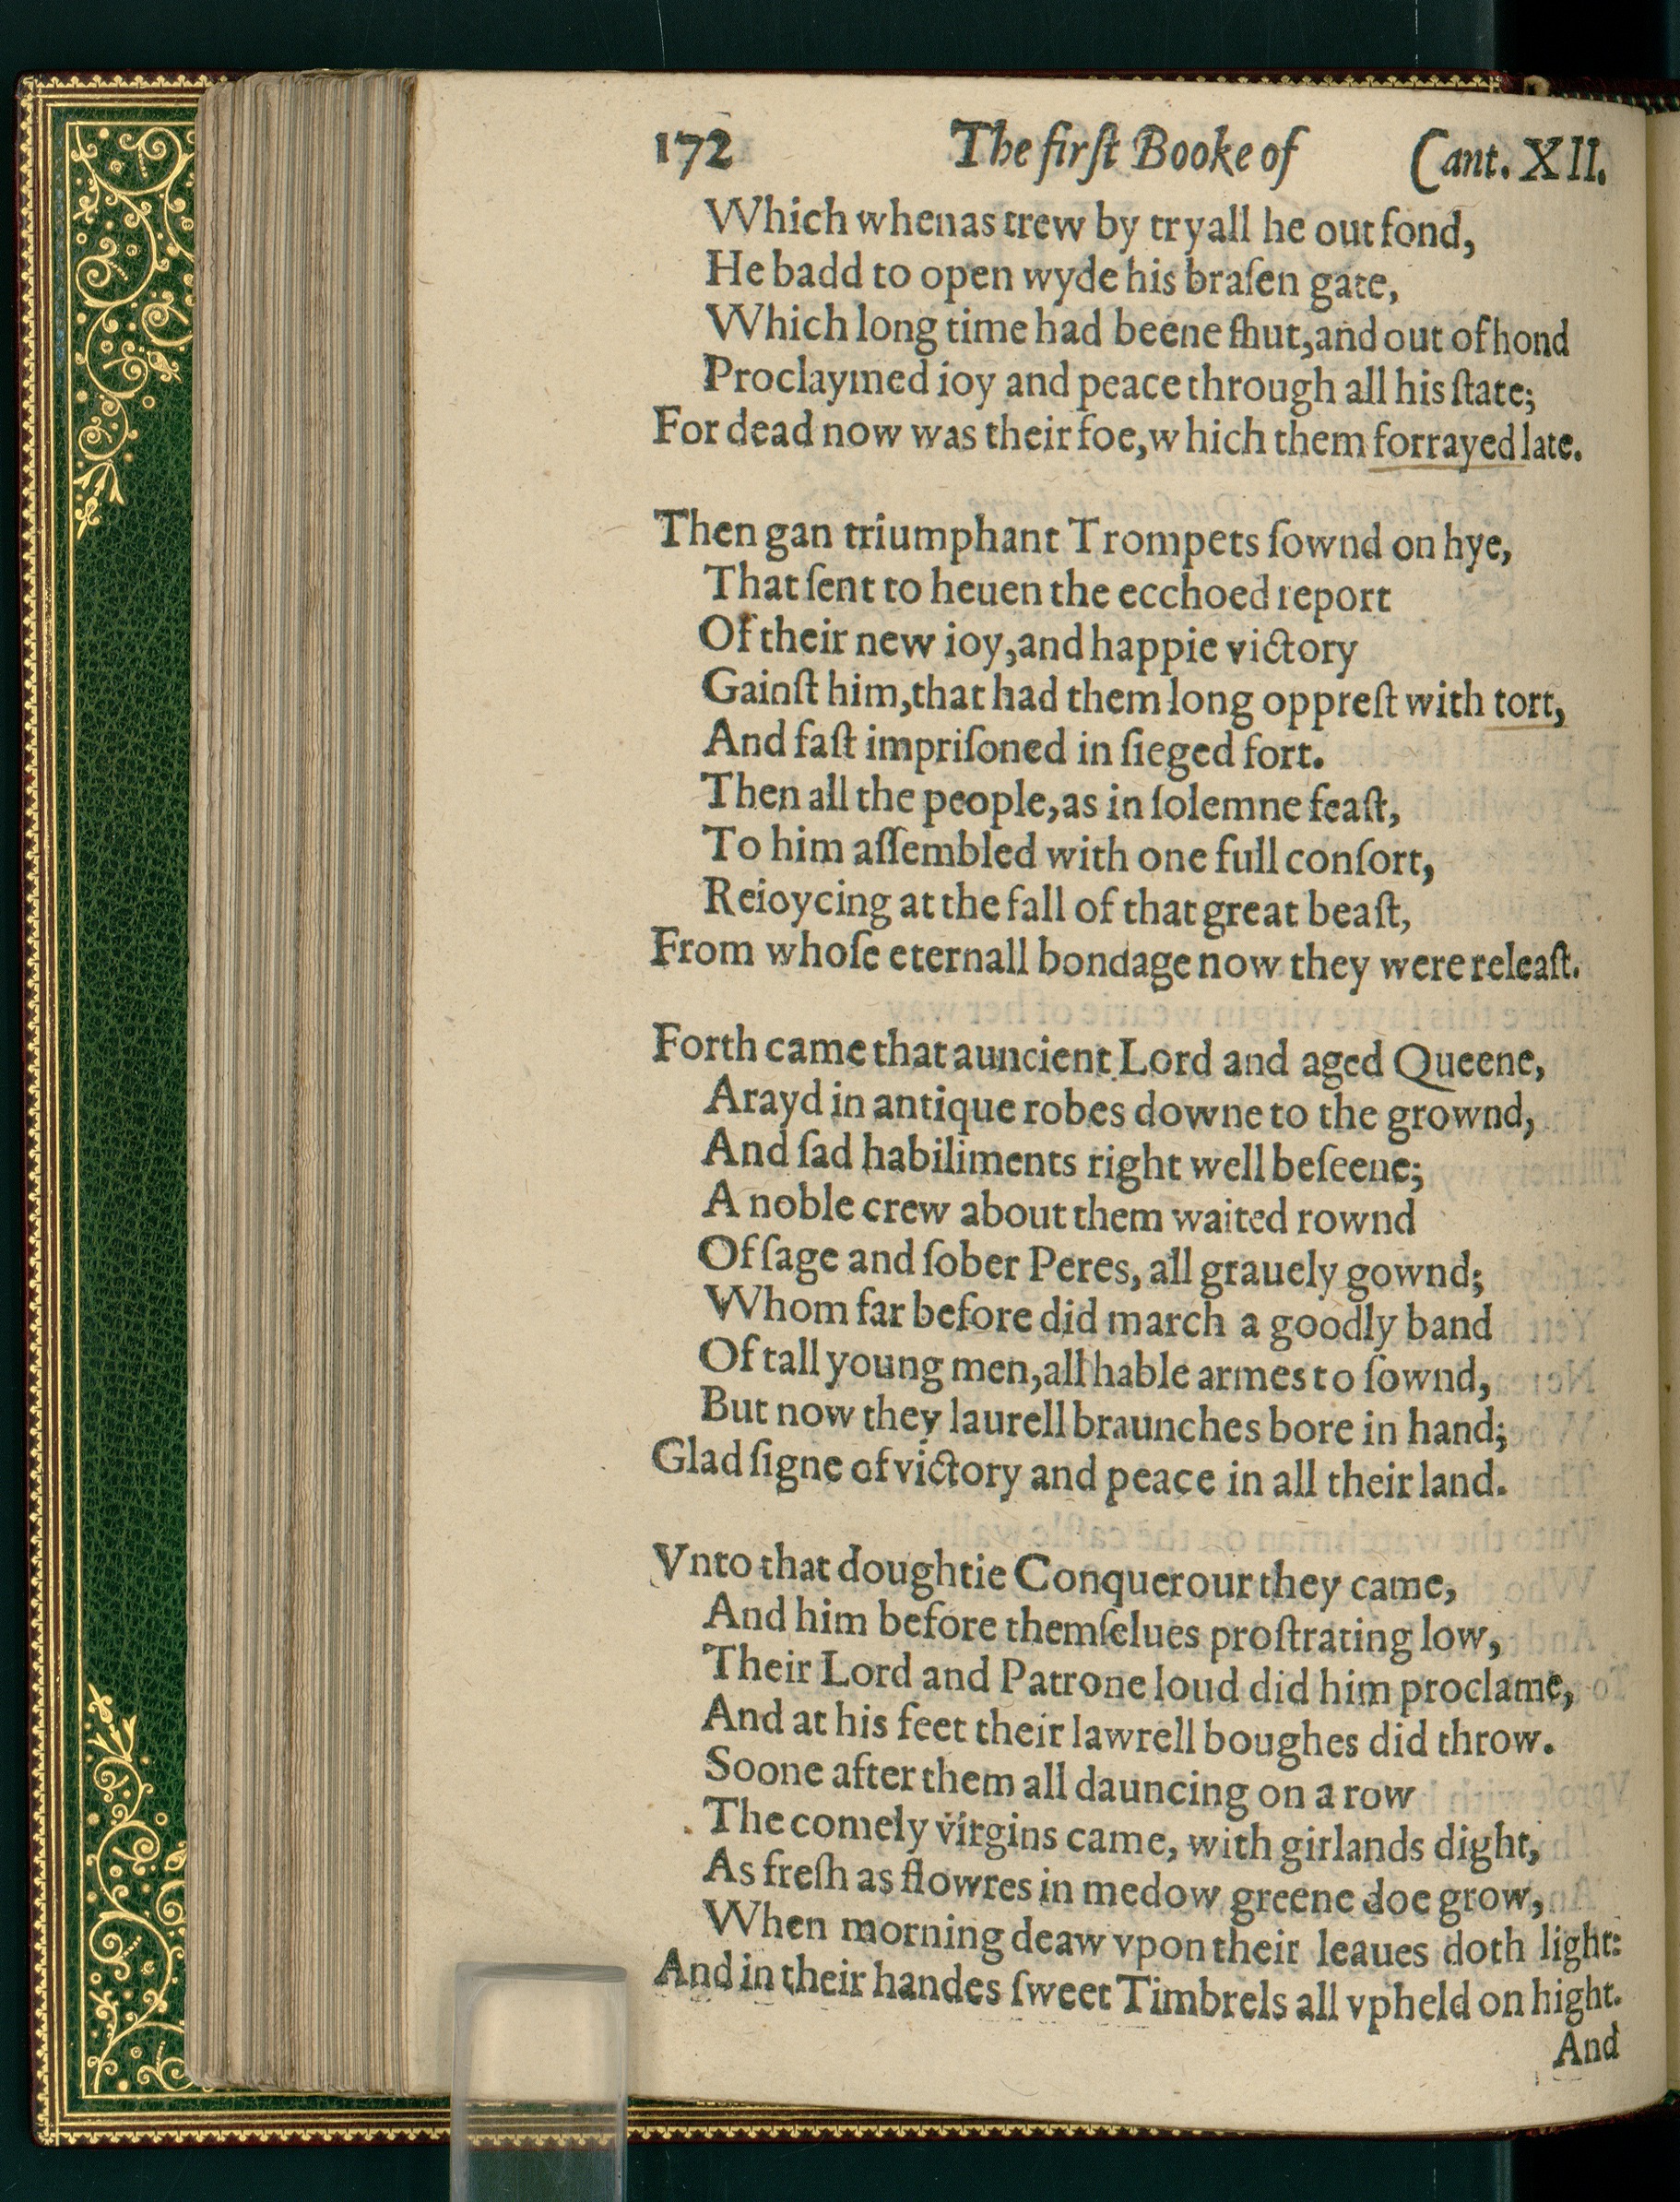 172 The firſt Booke of Cant. XII.
Which whenas trew by tryall he out fond,
He badd to open wyde his braſen gate,
Which long time had beene ſhut, and out of hond
Proclaymed ioy and peace through all his ſtate;
For dead now was their foe, which them forrayed late.
Then gan triumphant Trompets ſownd on hye,
That ſent to heuen the ecchoed report
Of their new ioy, and happie victory
Gainſt him, that had them long oppreſt with tort,
And faſt impriſoned in ſieged fort.
Then all the people, as in ſolemne feaſt,
To him aſſembled with one full conſort,
Reioycing at the fall of that great beaſt,
From whoſe eternall bondage now they were releaſt.
Forth came that auncient Lord and aged Queene,
Arayd in antique robes downe to the grownd,
And ſad habiliments right well beſeene;
A noble crew about them waited rownd
Of ſage and ſober Peres, all grauely gownd;
Whom far before did march a goodly band
Of tall young men, all hable armes to ſownd,
But now they laurell braunches bore in hand;
Glad ſigne of victory and peace in all their land.
Vnto that doughtie Conquerour they came,
And him before themſelues proſtrating low,
Their Lord and Patrone loud did him proclame,
And at his feet their lawrell boughes did throw.
Soone after them all dauncing on a row
The comely virgins came, with girlands dight,
As freſh as flowres in medow greene doe grow,
When morning deaw vpon their leaues doth light:
And in their handes ſweet Timbrels all vpheld on hight.
And